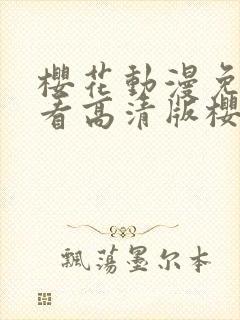 櫻花動漫免
看高清版櫻
飄蕩墨尔本